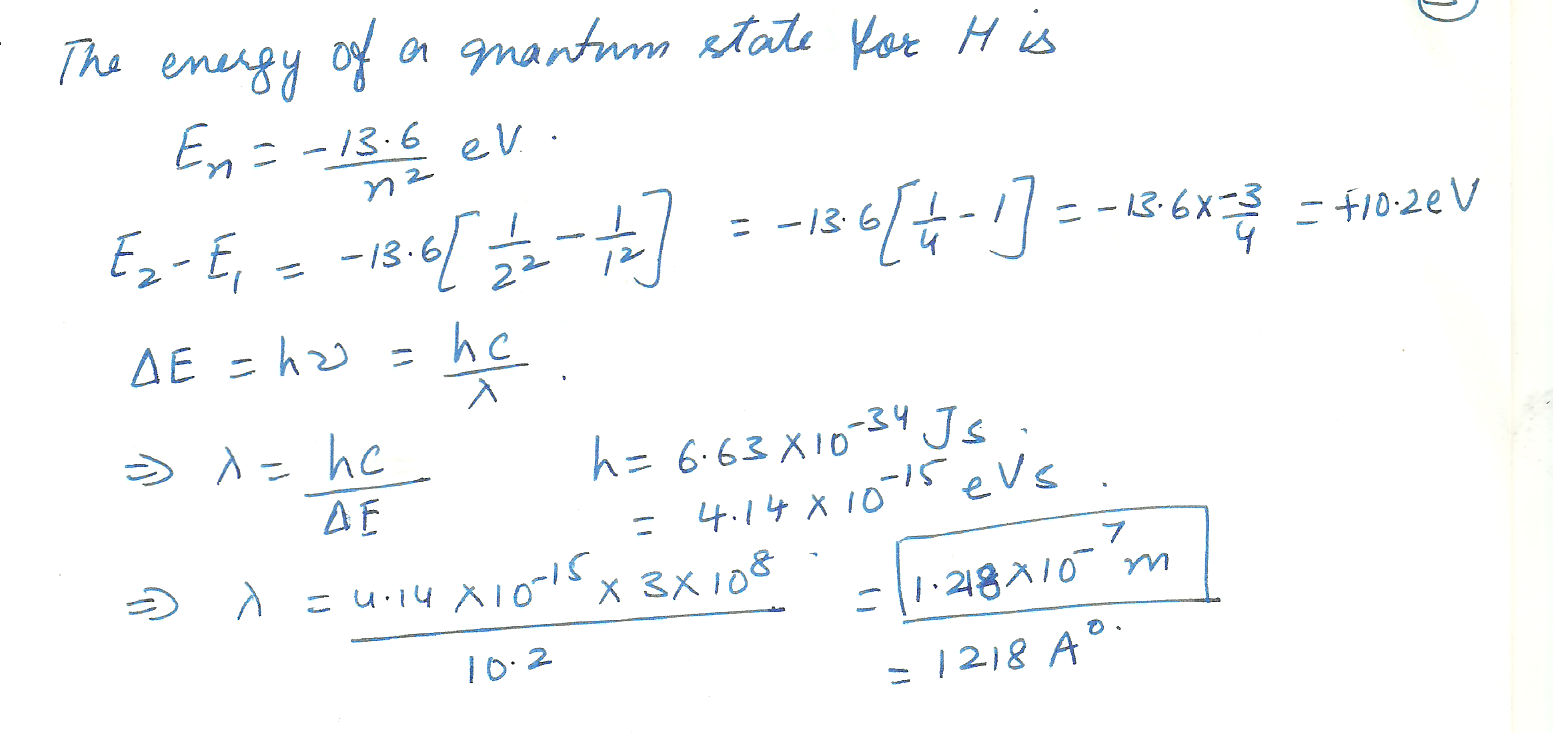 The energy of a quantum state for H is
Eₙ = -13.6/n² eV.
E₂-E₁ = -13.6[1/2² - 1/1²] = -13.6[1/4 - 1] = -13.6x-3/4 = +10.2eV
ΔE = hν = hc/λ.
⇒ λ = hc/ΔE h= 6.63 X10⁻³⁴ Js.
= 4.14 X 10⁻¹⁵ eVs.
⇒ λ = 4.14 X10⁻¹⁵ x 3X10⁸/10.2 = 1.218X10⁻⁷ m
= 1218 A⁰.